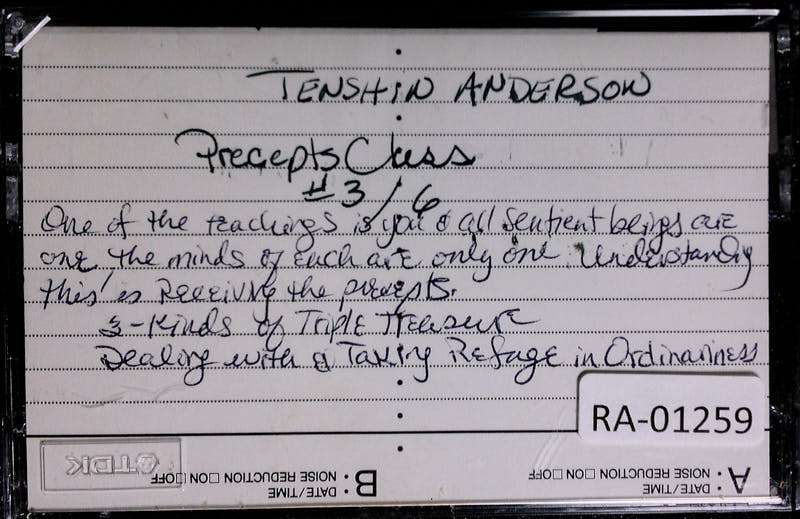 TENSHIN ANDERSON
Precepts Class
#3/6
One of the teachings is you & all sentient beings are
one, the minds of each are only one. Understanding
this is Receiving the precepts.
3-Kinds of Triple Treasure
Dealing with & Taking Refuge in Ordinariness
RA-01259
TDK
B • DATE/TIME
• NOISE REDUCTION □ON □OFF
A • DATE/TIME
• NOISE REDUCTION □ON □OFF